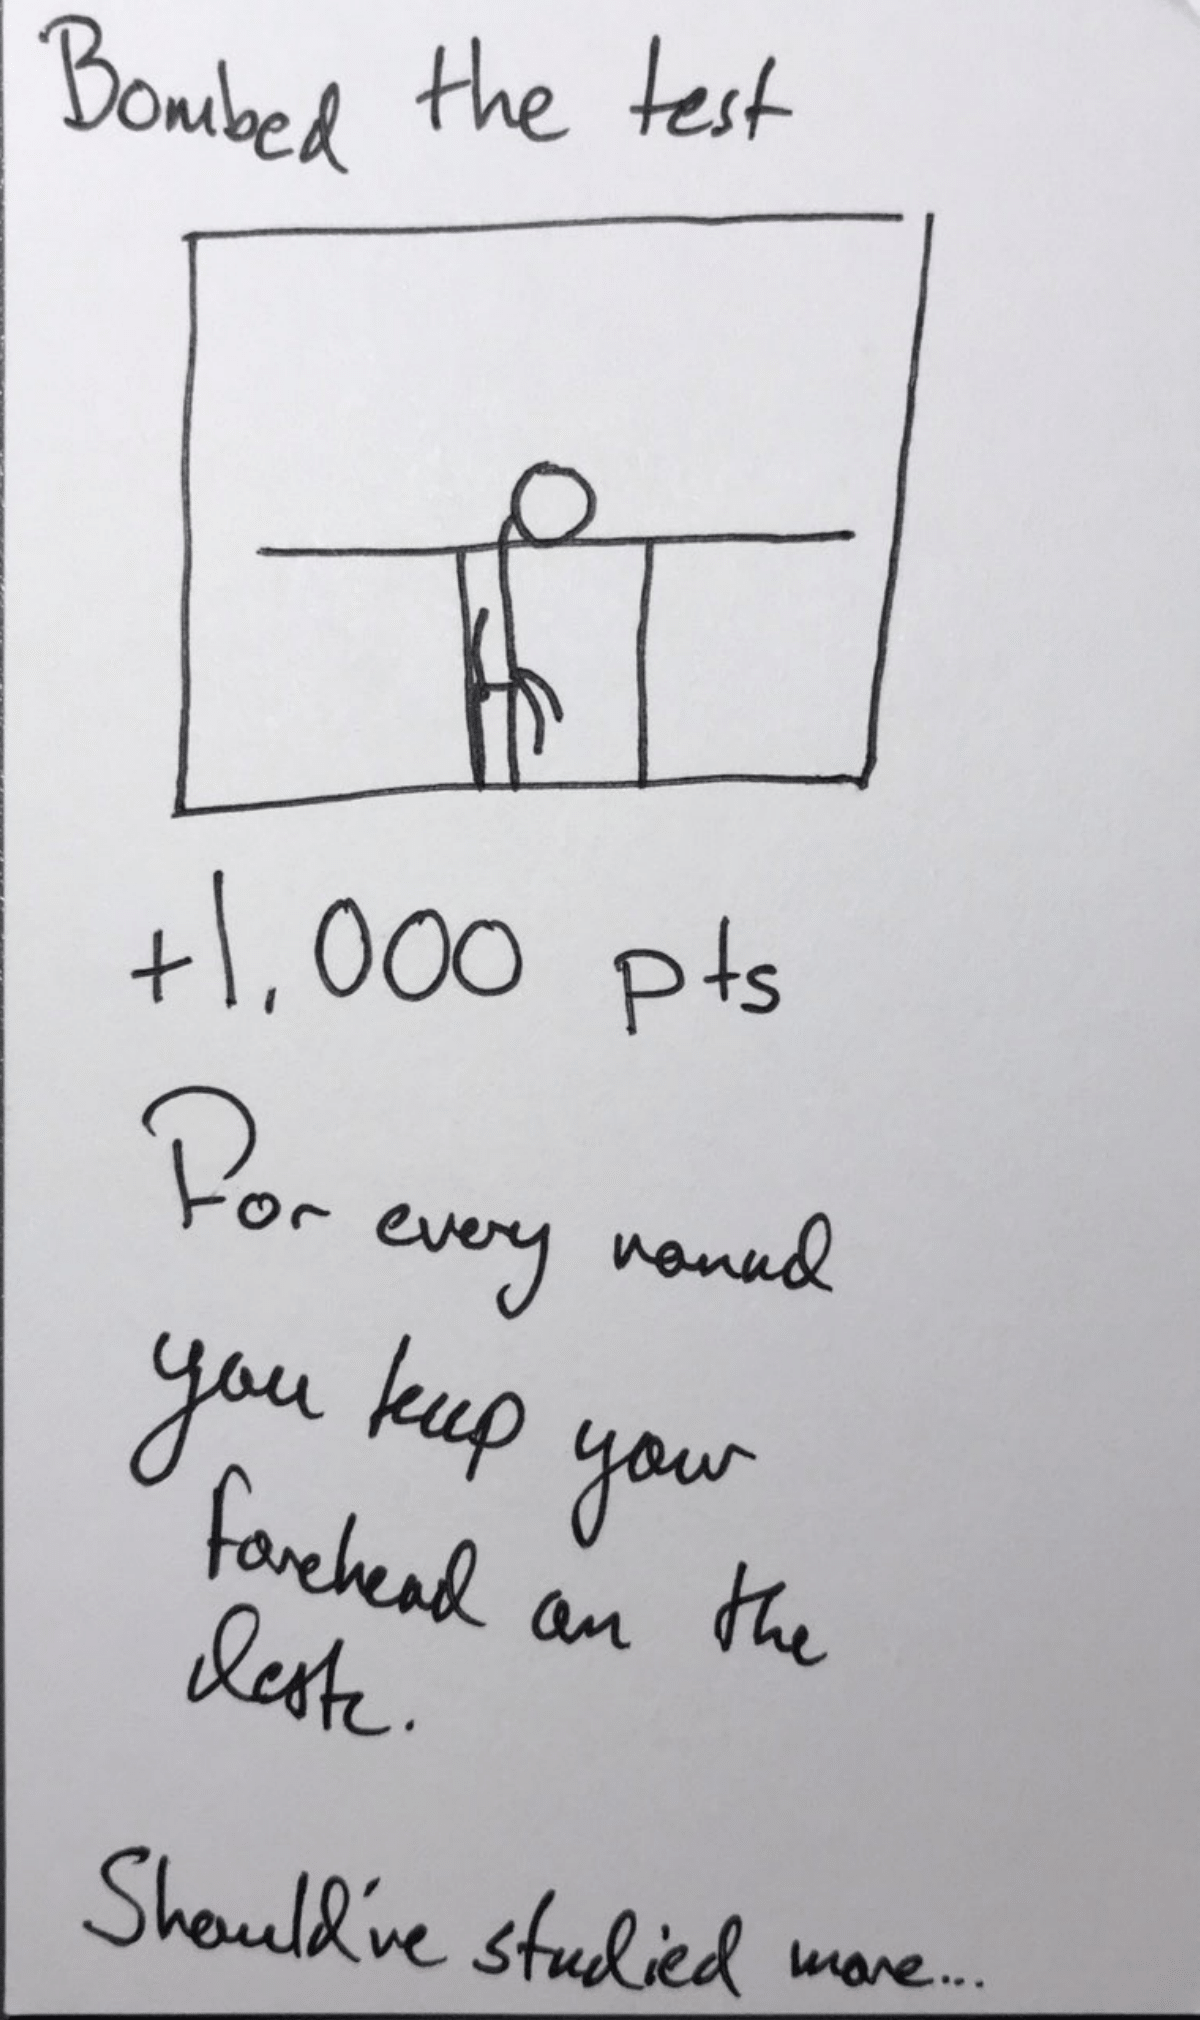 Bombed the test
+1,000 pts
For every round
you keep your
forehead on the
desk.
Should've studied more...